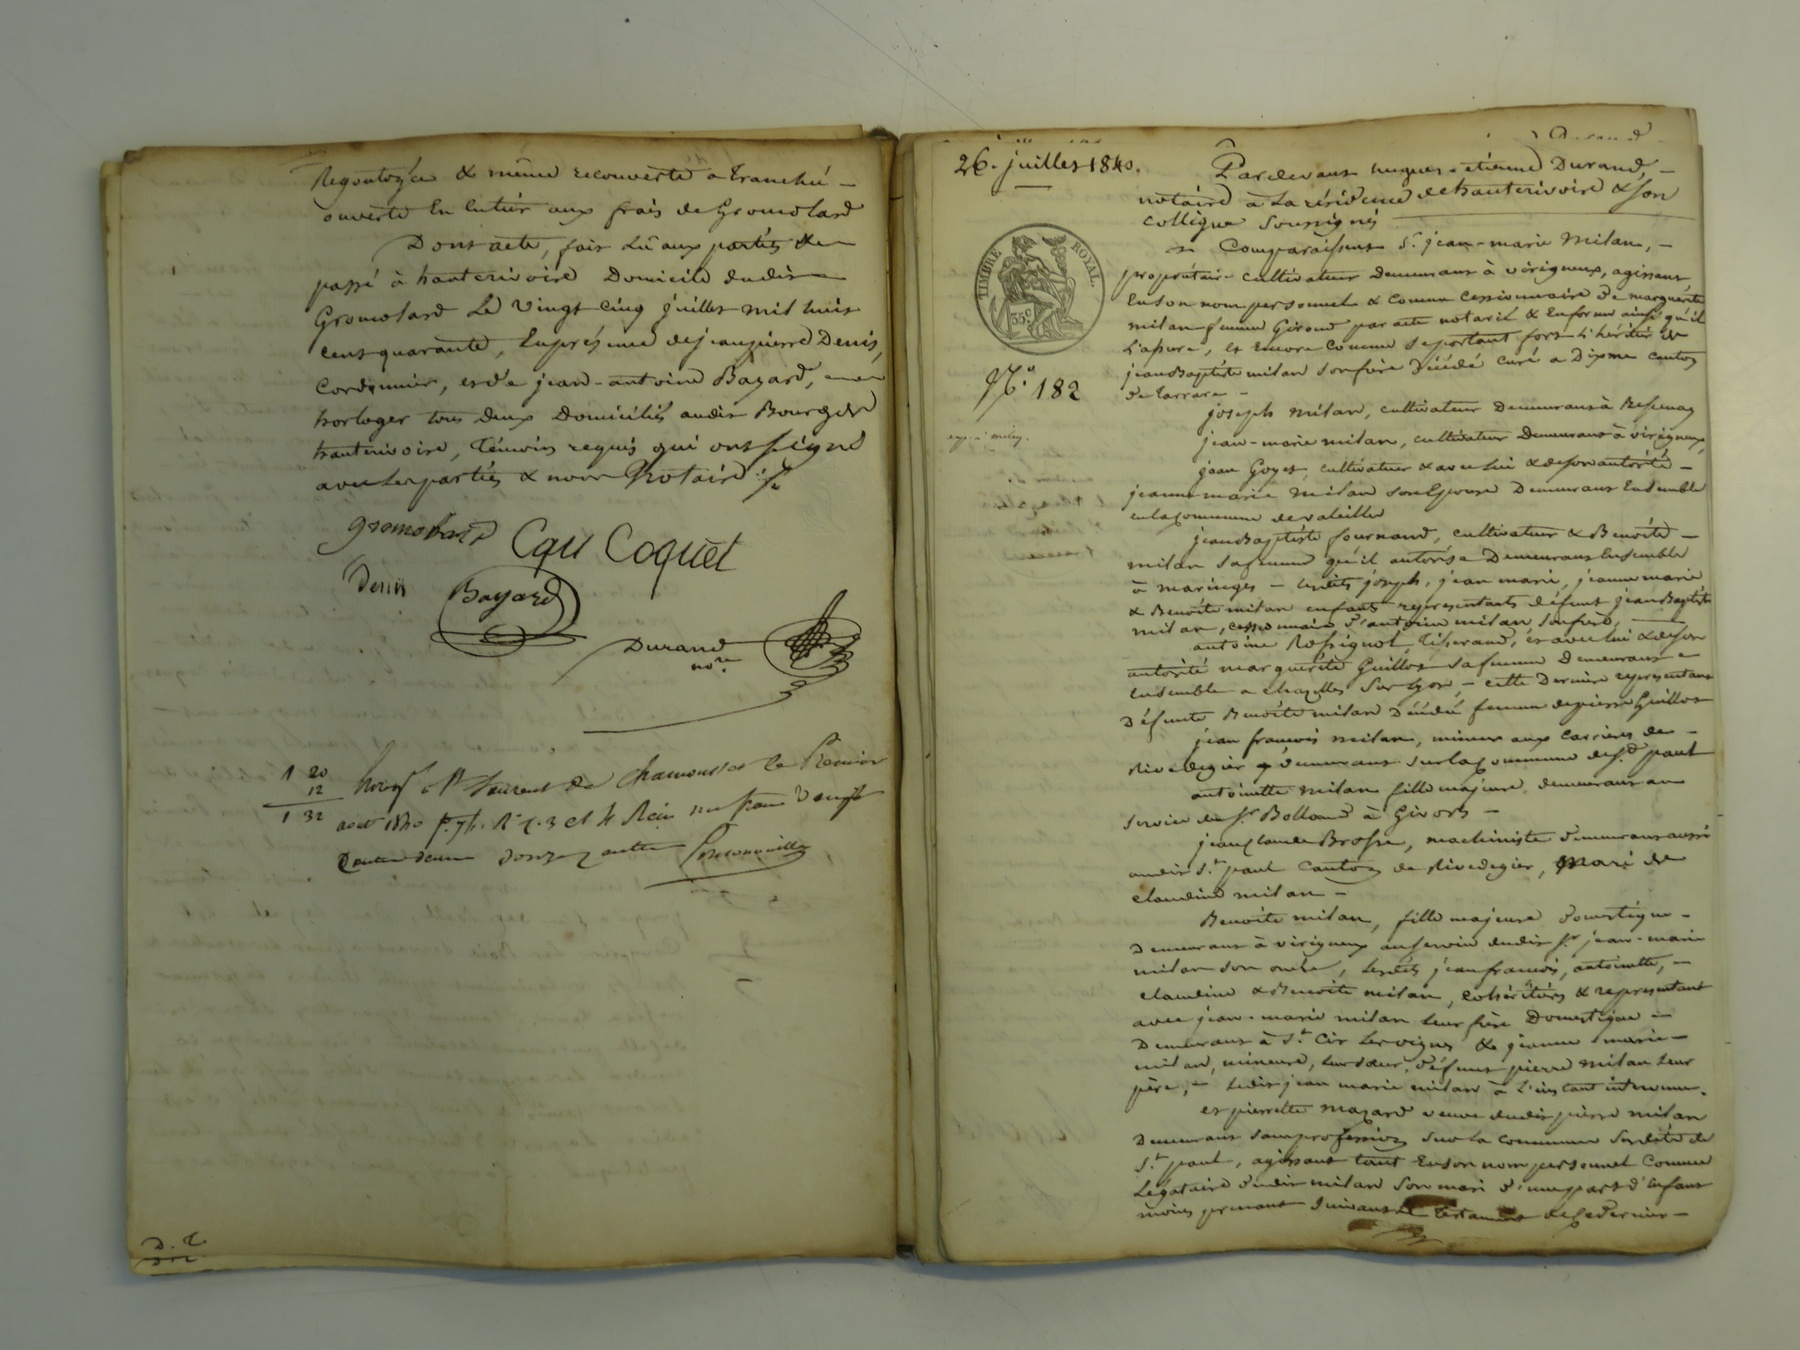 Regontoyée & même recouverte a tranché -
ouverte en entier aux frais de Gromolard
Dont acte, fait Lu aux parties &
passé à hauterivoire Domicile dudit
Gromolard Le Vingt cinq juillet mil huit
cent quarante, En présence de jean pierre Denis,
Cordonnier, et de jean-antoine Bayard,
horloger tous deux Domiciliés audit Bourg de
hauterivoire, témoins requis qui ont signé
avec Les parties & nous Notaire
gromolard Coquet
Denis Bayard
Durand
nore
1 20
12
1 32
St Laurent de Chamousset le Premier
août 1840 f. 74 Ro c. 3 et 4 Reçu un franc vingt
D. E.
26. juillet 1840.
TIMBRE ROYAL.
35c
No. 182
Pardevant hugues-étienne Durand, -
notaire à La résidence de hauterivoire & son
collègue soussignés
Comparaissent Sr. jean-marie Milan, -
propriétaire cultivateur demeurant à virigneux, agissant
En son nom personnel & comme cessionnaire de marguerite
milan femme Giroud par acte notarié & En forme ainsi qu'il
L'assure, et Encore comme se portant fort L'héritier de
jean Baptiste milan son frère Décédé curé a Dixme canton
de Tarrare -
joseph milan, cultivateur Demeurant à
jean-marie milan, cultivateur Demeurant à virigneux,
jean Goyet, cultivateur & avec lui & de son autorité -
jeanne marie Milan son Epouse Demeurant Ensemble
en la commune de valeille
jean Baptiste fournand, cultivateur & Benoîte -
milan sa femme qu'il autorise Demeurant Ensemble
à maringes - lesdits joseph, jean marie, jeanne marie
& Benoîte milan enfants représentants défunt jean Baptiste
milan, cessionnaire d'antoine milan son frère,
antoine Rossignol, tisserand, et avec lui & de son
autorité marguerite Guillot sa femme Demeurant
Ensemble a chazelles sur Lyon - cette Dernière représentant
Défunte Benoîte milan Décédée femme de pierre Guillot
jean françois milan, mineur aux carrières de -
Rivedegier demeurant sur la commune de St. paul
antoinette milan fille majeure, demeurant au
service du Sr. Bolland à Givors -
jean claude Brosse, machiniste demeurant aussi
audit St. paul canton de Rivedegier, Mari de
claudine milan -
Benoîte milan, fille majeure domestique -
Demeurant à virigneux au service dudit Sr. jean-marie
milan son oncle, lesdits jean françois, antoinette, -
claudine & Benoîte milan, cohéritiers & représentant
avec jean-marie milan leur frère Domestique -
Demeurant à St. Cir Les vignes & jeanne marie -
milan, mineure, leur sœur, défunt pierre milan leur
père, - Ledit jean marie milan à L'instant intervenu.
et pierrette mazard veuve dudit pierre milan
Demeurant sans profession sur la commune susdite de
St. paul, agissant tant En son nom personnel comme
Légataire dudit milan son mari d'une part d'enfant
moins prenant suivant le testament de ce dernier -